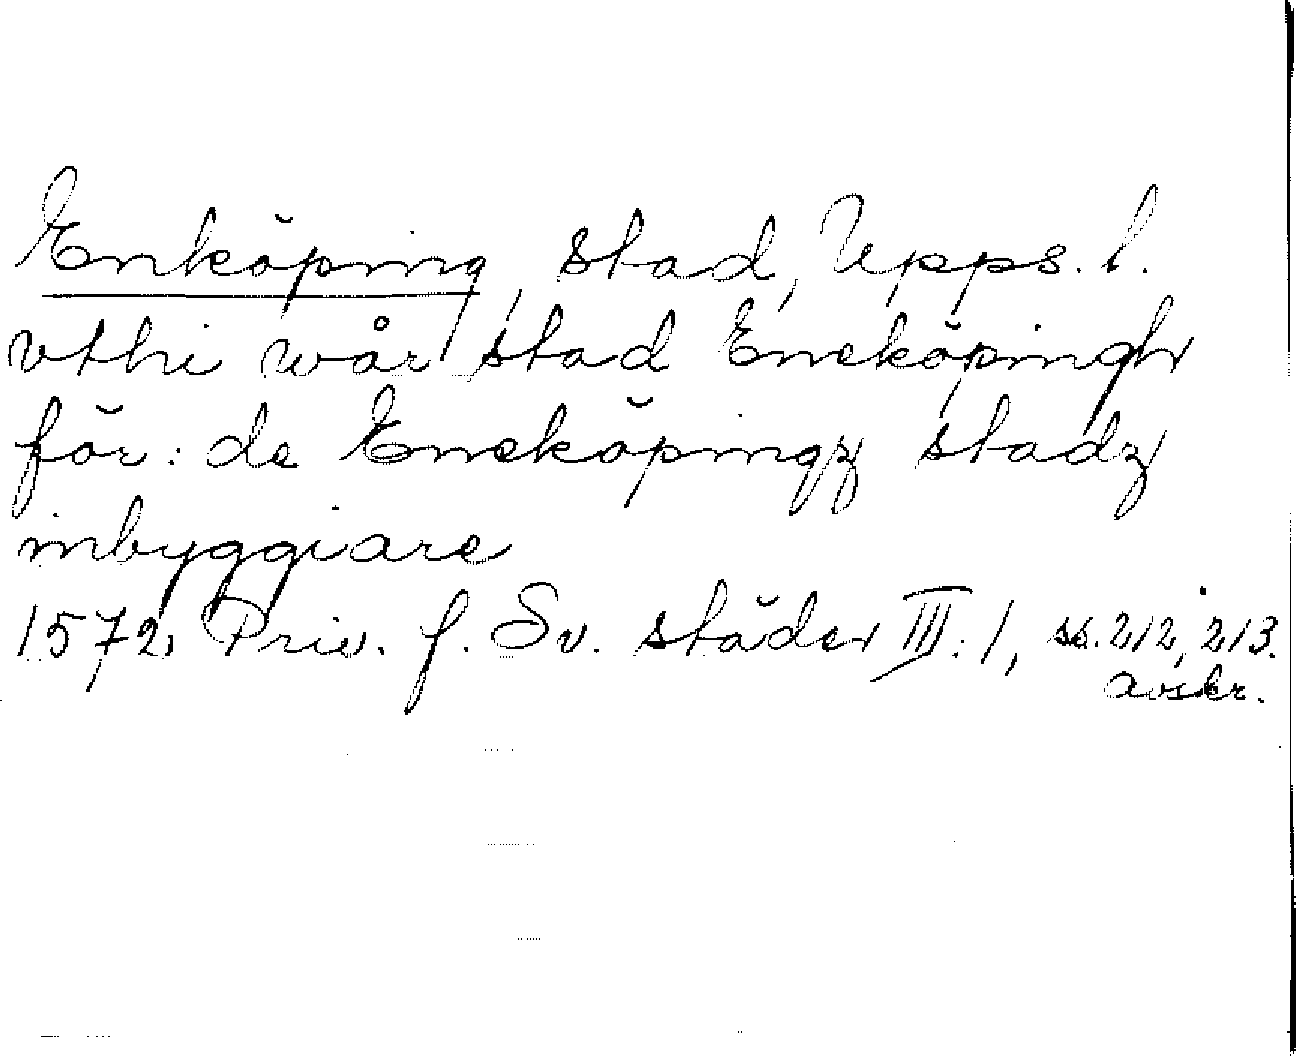 Enköping, stad, Upps. l.
vthi wår stad Eneköpingh
för: de Eneköpingz stadz
inbyggiare
1572, Priv. f. Sv. städer III:1, ss. 212, 213.
avskr.